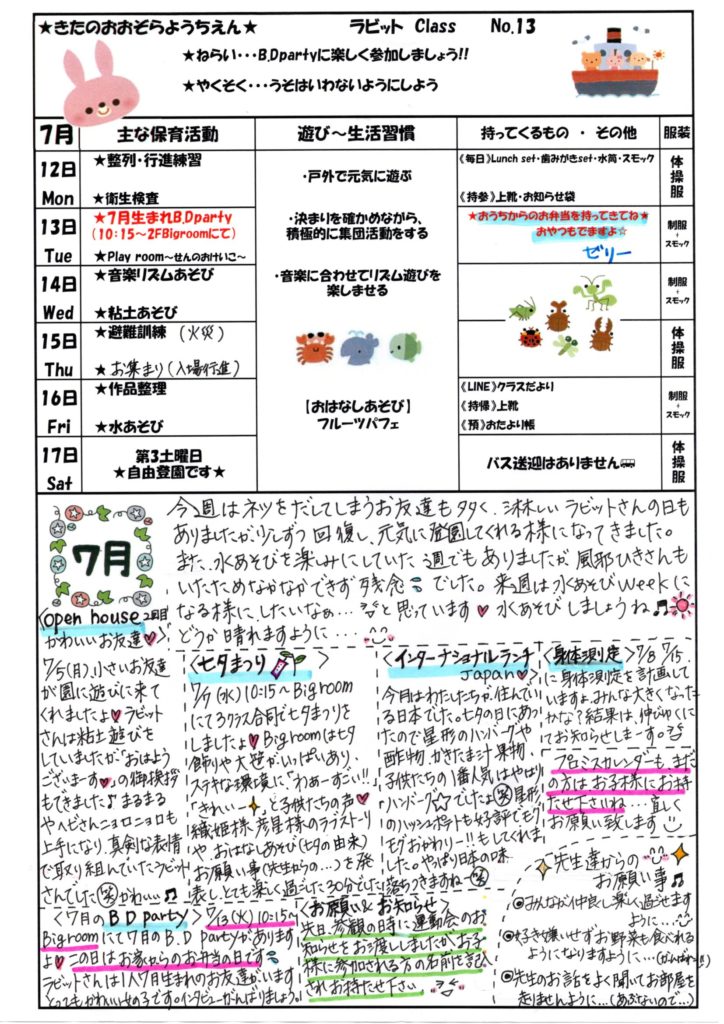 ★きたのおおぞらようちえん★ ラビット Class No.13
★ねらい・・・B.Dpartyに楽しく参加しましょう!!
★やくそく・・・うそはいわないようにしよう
7月 主な保育活動 遊び～生活習慣 持ってくるもの ・ その他 服装
12日 Mon
★整列・行進練習
★衛生検査
・戸外で元気に遊ぶ
《毎日》Lunch set・歯みがきset・水筒・スモック
《持参》上靴・お知らせ袋
体操服
13日 Tue
★7月生まれB.Dparty
(10:15～2FBigroomにて)
★Play room～せんのおけいこ～
・決まりを確かめながら、
積極的に集団活動をする
★おうちからのお弁当を持ってきてね★
おやつもでますよ☆
ゼリー
制服
+
スモック
14日 Wed
★音楽リズムあそび
★粘土あそび
・音楽に合わせてリズム遊びを
楽しませる
制服
+
スモック
15日 Thu
★避難訓練 (火災)
★お集まり(入場行進)
体操服
16日 Fri
★作品整理
★水あそび
【おはなしあそび】
フルーツパフェ
《LINE》クラスだより
《持帰》上靴
《預》おたより帳
制服
+
スモック
17日 Sat
第3土曜日
★自由登園です★
バス送迎はありません
体操服
7月
今週はネツをだしてしまうお友達も多く、淋しいラビットさんの日も
ありましたが少しずつ回復し、元気に登園してくれる様になってきました。
また、水あそびを楽しみにしていた週でもありましたが風邪ひきさんも
いたためなかなかできず残念でした。来週は水あそびweekに
なる様にしたいなぁ…と思っています♥水あそびしましょうね♫
どうか晴れますように…
〈open house 2回目
かわいいお友達♥〉
7/5(月)、小さいお友達
が園に遊びに来て
くれましたよ♥ラビット
さんは粘土遊びを
していましたが「おはよう
ございます♥」の御挨拶
もできました♪まるまる
やヘビさんニョロニョロも
上手になり、真剣な表情
で取り組んでいたラビット
さんでした(笑)かわいい♫
〈七夕まつり〉
7/7(水)10:15～Bigroom
にて3クラス合同で七夕まつりを
しましたよ♥Bigroomは七夕
飾りや大笹がいっぱいあり、
ステキな環境に、「わあーすごい!!」
「きれいー」と子供たちの声♥
織姫様、彦星様のラブストーリー
や、おはなしあそび(七夕の由来)
お願い事(先生からの…)を発
表し、とても楽しく過ごした30分でした
〈インターナショナルランチ
JAPAN♥〉
今月はわたしたちが住んでい
る日本でした。七夕の日にあっ
たので星形のハンバーグや
酢物、かきたま汁、果物、
子供たちの1番人気はやはり
「ハンバーグ☆」でしたよ(笑)星形
のハッシュポットも好評で「モグ
モグおかわりー!!」もしてくれま
した。やっぱり日本の味
落ちつきますね～(笑)
〈身体測定〉7/8、7/15、
に身体測定を計画して
いますよ。みんな大きくなった
かな？結果は、伸びゆくに
てお知らせしまーす。
プロミスカレンダーも、まだ
の方はお子様にお持
たせ下さいね…宜しく
お願い致します
〈7月のB D party〉7/13(火)10:15～
Bigroomにて7月のB.D partyがあります
よ♥この日はお家からのお弁当の日です
ラビットさんは1人7月生まれのお友達がいます
とってもかわいい女の子です。インタビューがんばりましょう。
〈お願い&お知らせ〉
先日、参観の時に運動会のお
知らせをお渡ししましたがお子
様に参加される方の名前を記入
されお持たせ下さい
先生達からの
お願い事♫
◉みんなが仲良し楽しく過ごせます
ように…
◉好き嫌いせずお野菜も食べれる
ようになりますように…
◉先生のお話をよく聞いてお部屋を
走りませんように…(あぶないので…)